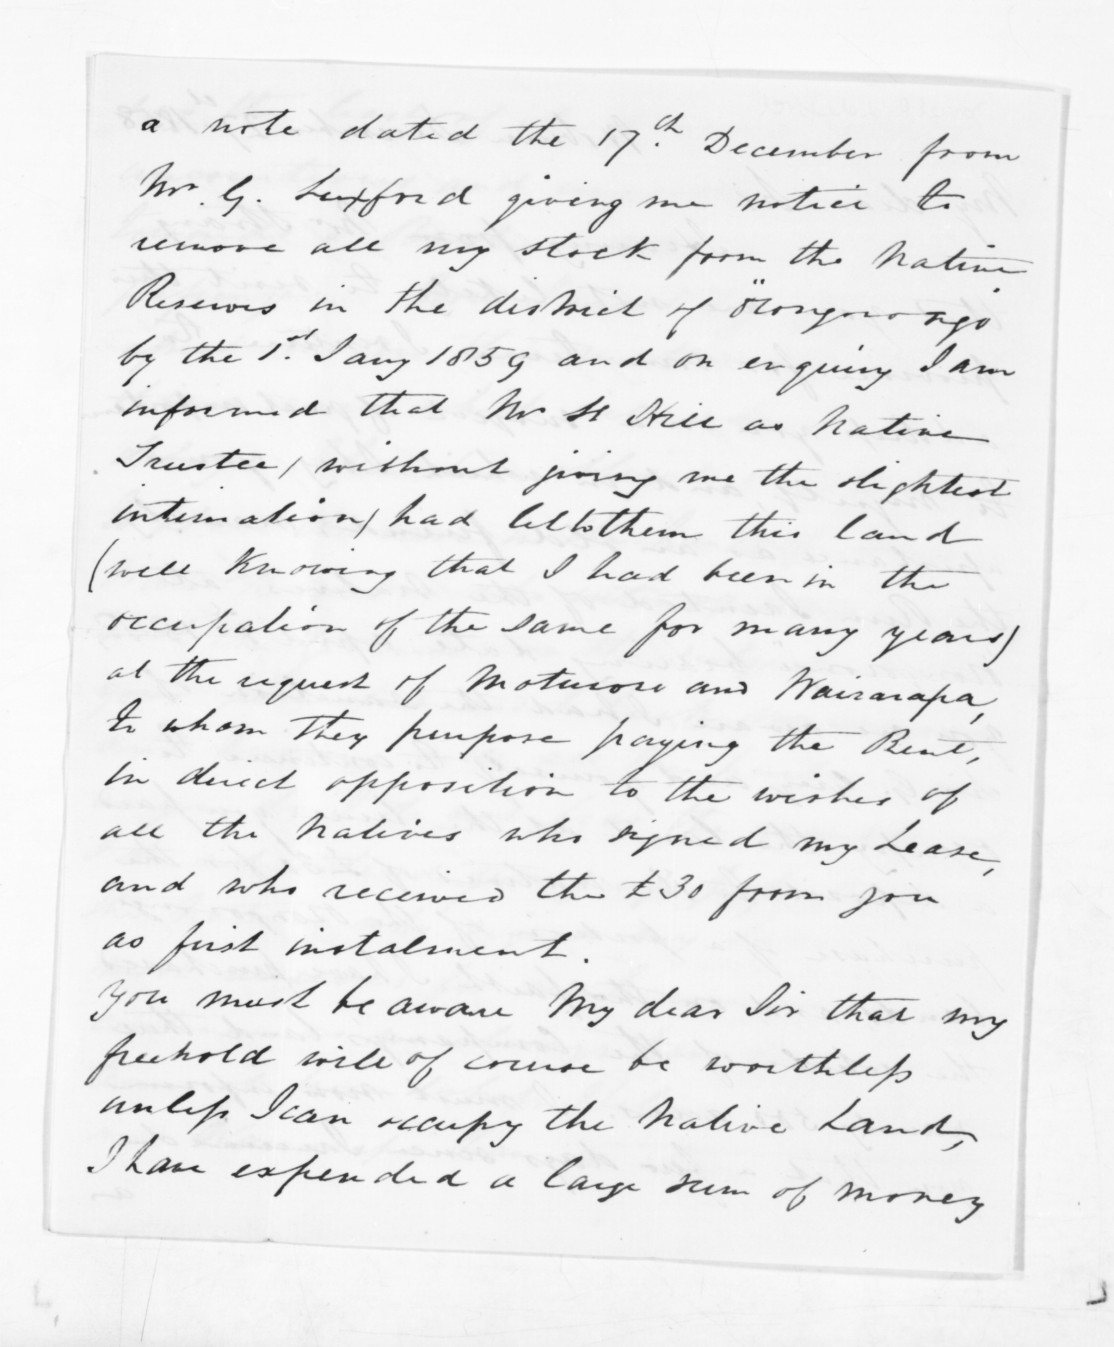 a note dated the 17th. December from
Mr. G. Luxford giving me notice to
remove all my stock from the Native
Reserves in the district of "Orongorongo"
by the 1st. Jany 1859 and on enquiry I am
informed that Mr St Hill as Native
Trustee, (without giving me the slightest
intimation) had let to them this land
(well Knowing that I had been in the
occupation of the same for many years)
at the request of and Wairarapa,
to whom they purpose paying the Rent,
in direct opposition to the wishes of
all the Natives who signed my Lease,
and who received the £30 from you
as first instalment.
You must be aware My dear Sir that my
freehold will of course be worthless
unless I can occupy the Native Land,
I have expended a large sum of money